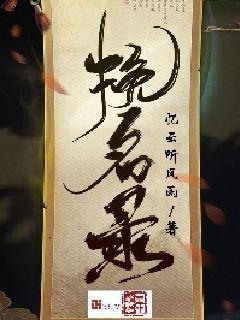 挽名录
忆云听风雨/著